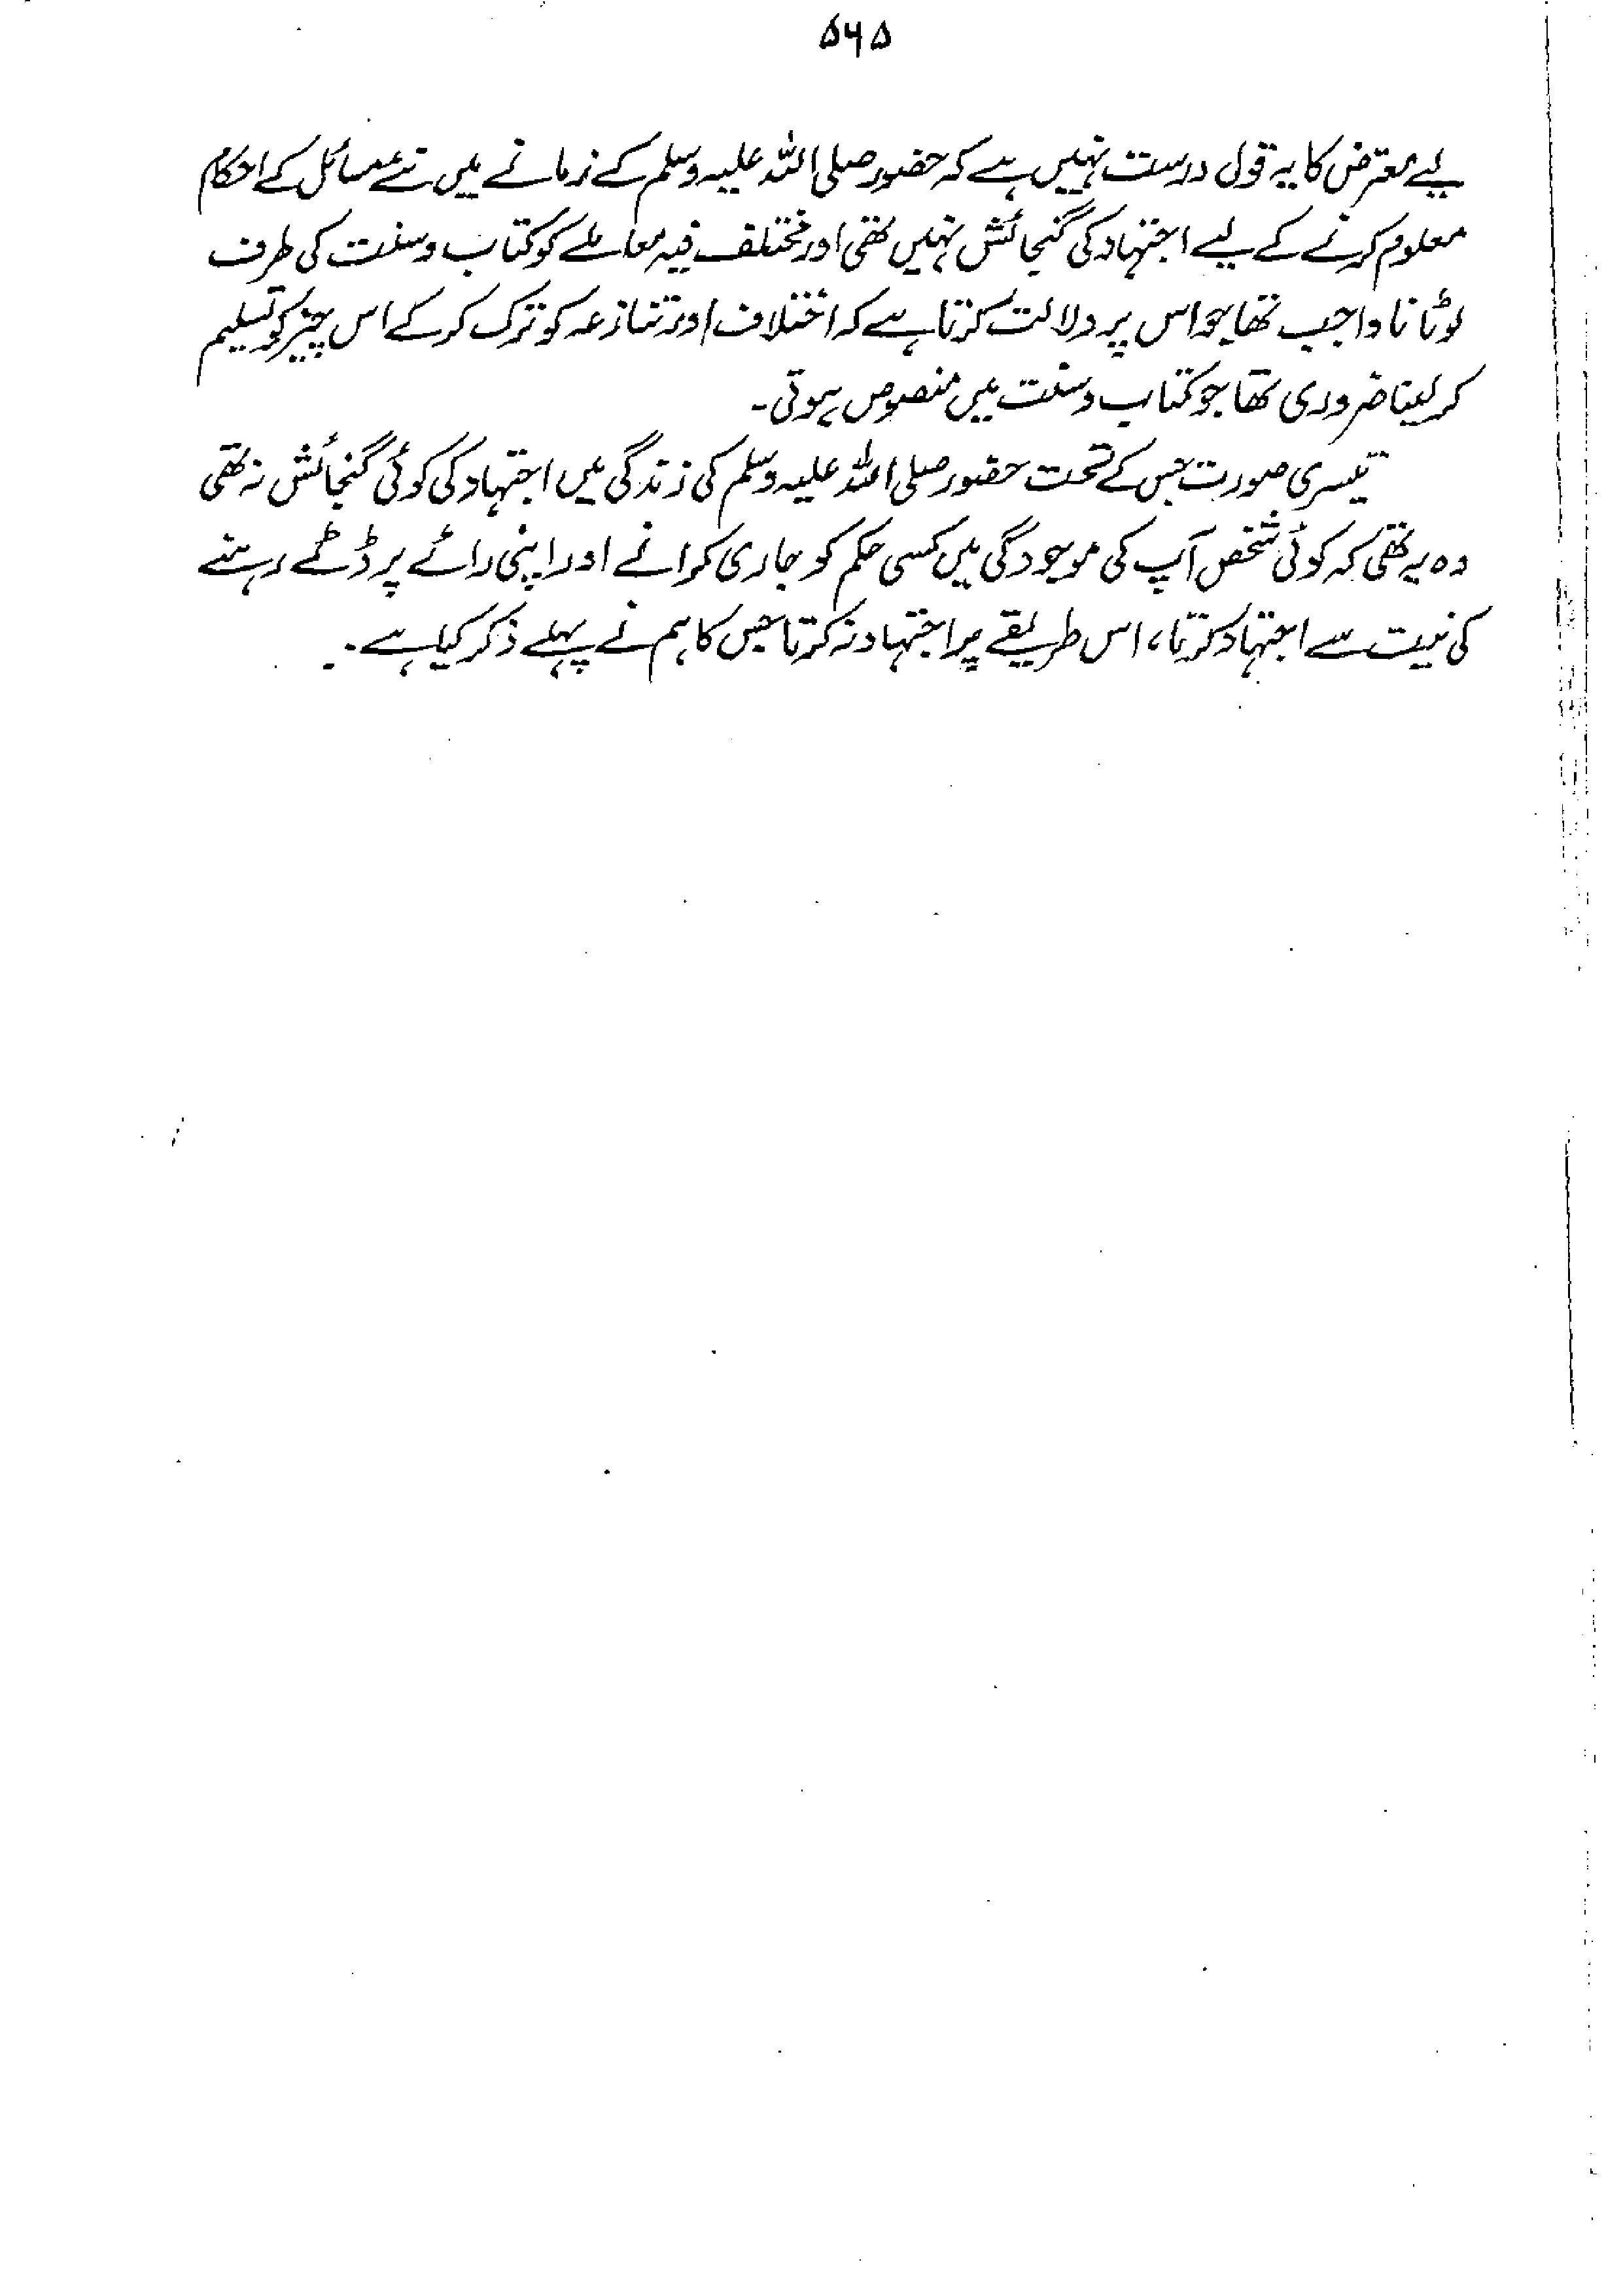 ۵۶۵
لیے معترض کا یہ قول درست نہیں ہے کہ حضور صلی اللہ علیہ وسلم کے زمانے میں نئے مسائل کے احکام
معلوم کرنے کے لیے اجتہاد کی گنجائش نہیں تھی اور مختلف فیہ معاملے کو کتاب و سنت کی طرف
لوٹانا واجب تھا جو اس پر دلالت کرتا ہے کہ اختلاف اور تنازعہ کو ترک کر کے اس چیز کو تسلیم
کر لینا ضروری تھا جو کتاب و سنت میں منصوص ہوتی۔
تیسری صورت جس کے تحت حضور صلی اللہ علیہ وسلم کی زندگی میں اجتہاد کی کوئی گنجائش نہ تھی
وہ یہ تھی کہ کوئی شخص آپ کی موجودگی میں کسی حکم کو جاری کرانے اور اپنی رائے پر ڈٹے رہنے
کی نیت سے اجتہاد کرتا، اس طریقے پر اجتہاد نہ کرتا جس کا ہم نے پہلے ذکر کیا ہے۔